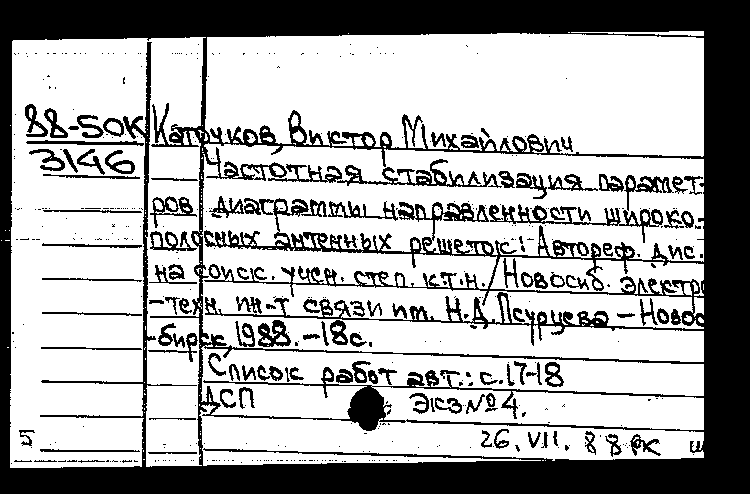 88-50К Каточков, Виктор Михайлович.
3146 Частотная стабилизация парамет-
ров диаграммы направленности широко-
полосных антенных решеток: Автореф. дис.
на соиск. учен. степ. к.т.н. / Новосиб. электро
-техн. ин-т связи им. Н.Д. Псурцева – Новос
-бирск, 1988. – 18 с.
Список работ авт.: с. 17-18
ДСП Экз №4.
5 26. VII. 88 РК